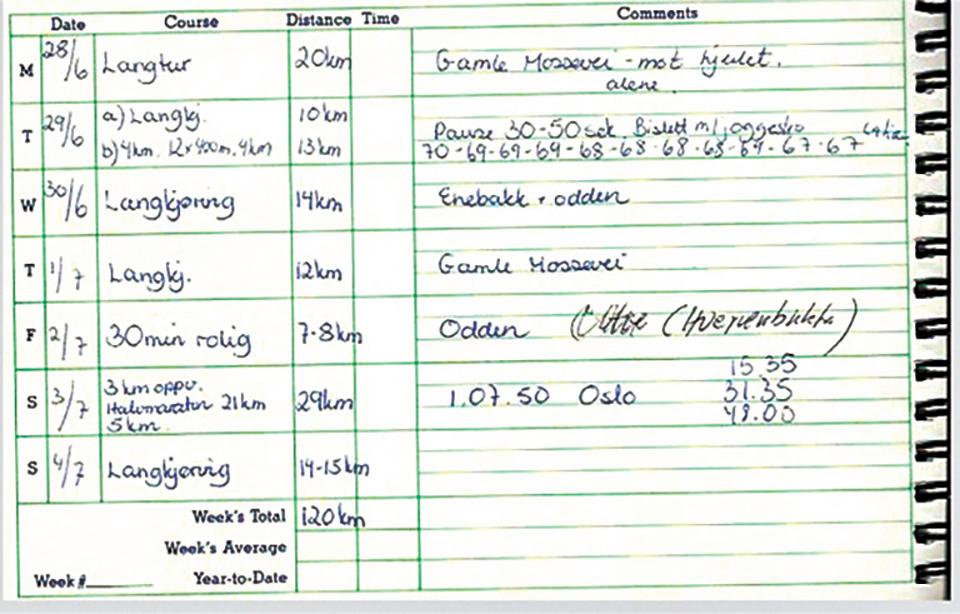 Date Course Distance Time Comments
M 28/6 Langtur 20km Gamle Mossevei - mot hjulet.
alene.
T 29/6 a) Langkj. 10km Pause 30-50 sek. Bislett m/joggesko
b) 4km. 12x400m. 4km 13km 70-69-69-69-68-68-68-68-69-67-67
W 30/6 Langkjøring 14km Enebakk - odden
T 1/7 Langkj. 12km Gamle Mossevei
F 2/7 30min rolig 7-8km Odden
S 3/7 3 km oppv. 15.35
Halvmaraton 21km 29km 1.07.50 Oslo 31.35
5km. 48.00
S 4/7 Langkjøring 14-15km
Week's Total 120km
Week's Average
Week # Year-to-Date